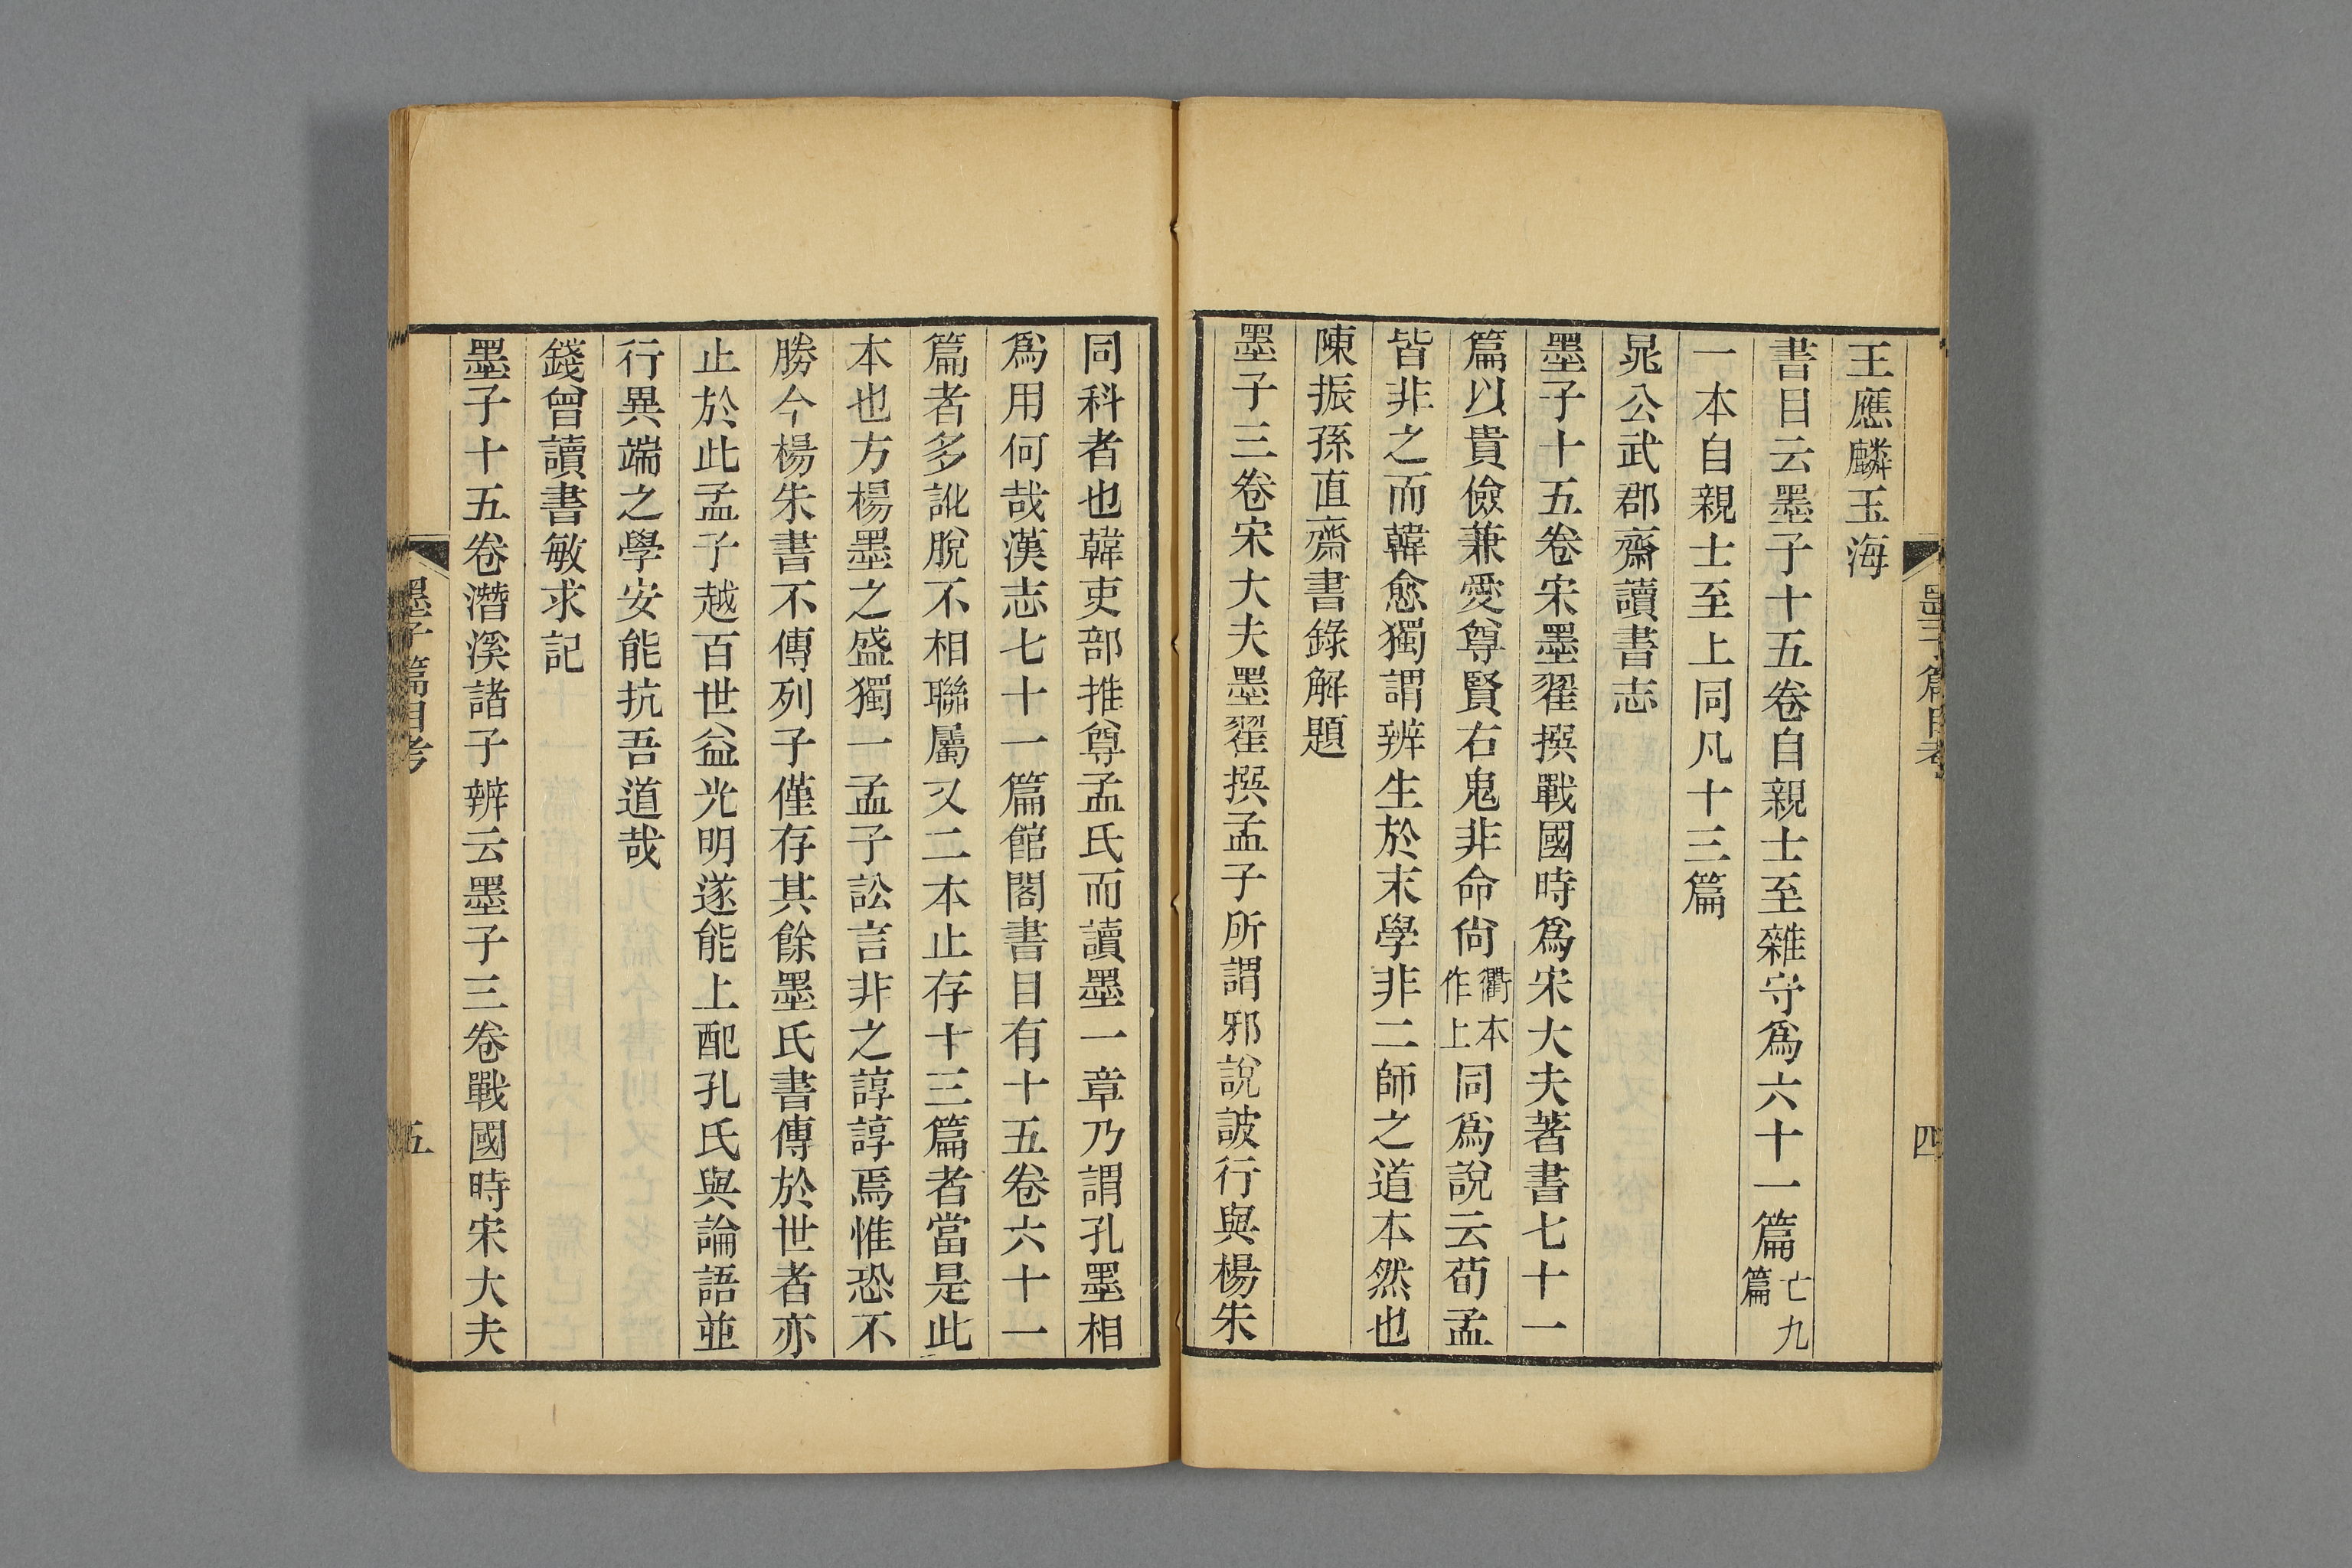 墨子篇目考
四
王應麟玉海
書目云墨子十五卷自親士至雜守爲六十一篇亡九篇
一本自親士至上同凡十三篇
晁公武郡齋讀書志
墨子十五卷宋墨翟撰戰國時爲宋大夫著書七十一
篇以貴儉兼愛尊賢右鬼非命尙衢本作上同爲說云荀孟
皆非之而韓愈獨謂辨生於末學非二師之道本然也
陳振孫直齋書錄解題
墨子三卷宋大夫墨翟撰孟子所謂邪說詖行與楊朱
同科者也韓吏部推尊孟氏而讀墨一章乃謂孔墨相
爲用何哉漢志七十一篇館閣書目有十五卷六十一
篇者多訛脫不相聯屬又二本止存十三篇者當是此
本也方楊墨之盛獨一孟子訟言非之諄諄焉惟恐不
勝今楊朱書不傳列子僅存其餘墨氏書傳於世者亦
止於此孟子越百世益光明遂能上配孔氏與論語並
行異端之學安能抗吾道哉
錢曾讀書敏求記
墨子十五卷潛溪諸子辨云墨子三卷戰國時宋大夫
墨子篇目考
五